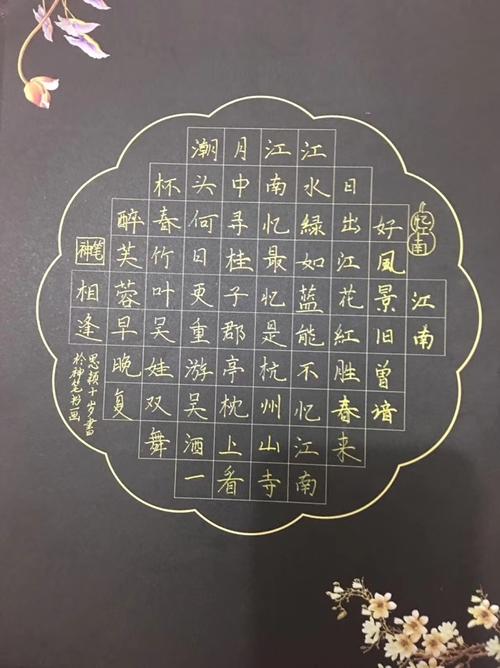 忆江南
江南
好風景旧曾谙
日出江花紅胜春来
江水緑如蓝能不忆江南
江南忆最忆是杭州山寺
月中寻桂子郡亭枕上看
潮头何日更重游吴酒一
杯春竹叶吴娃双舞
醉芙蓉早晚复
相逢
神笔
思颖十岁書
於神笔书画